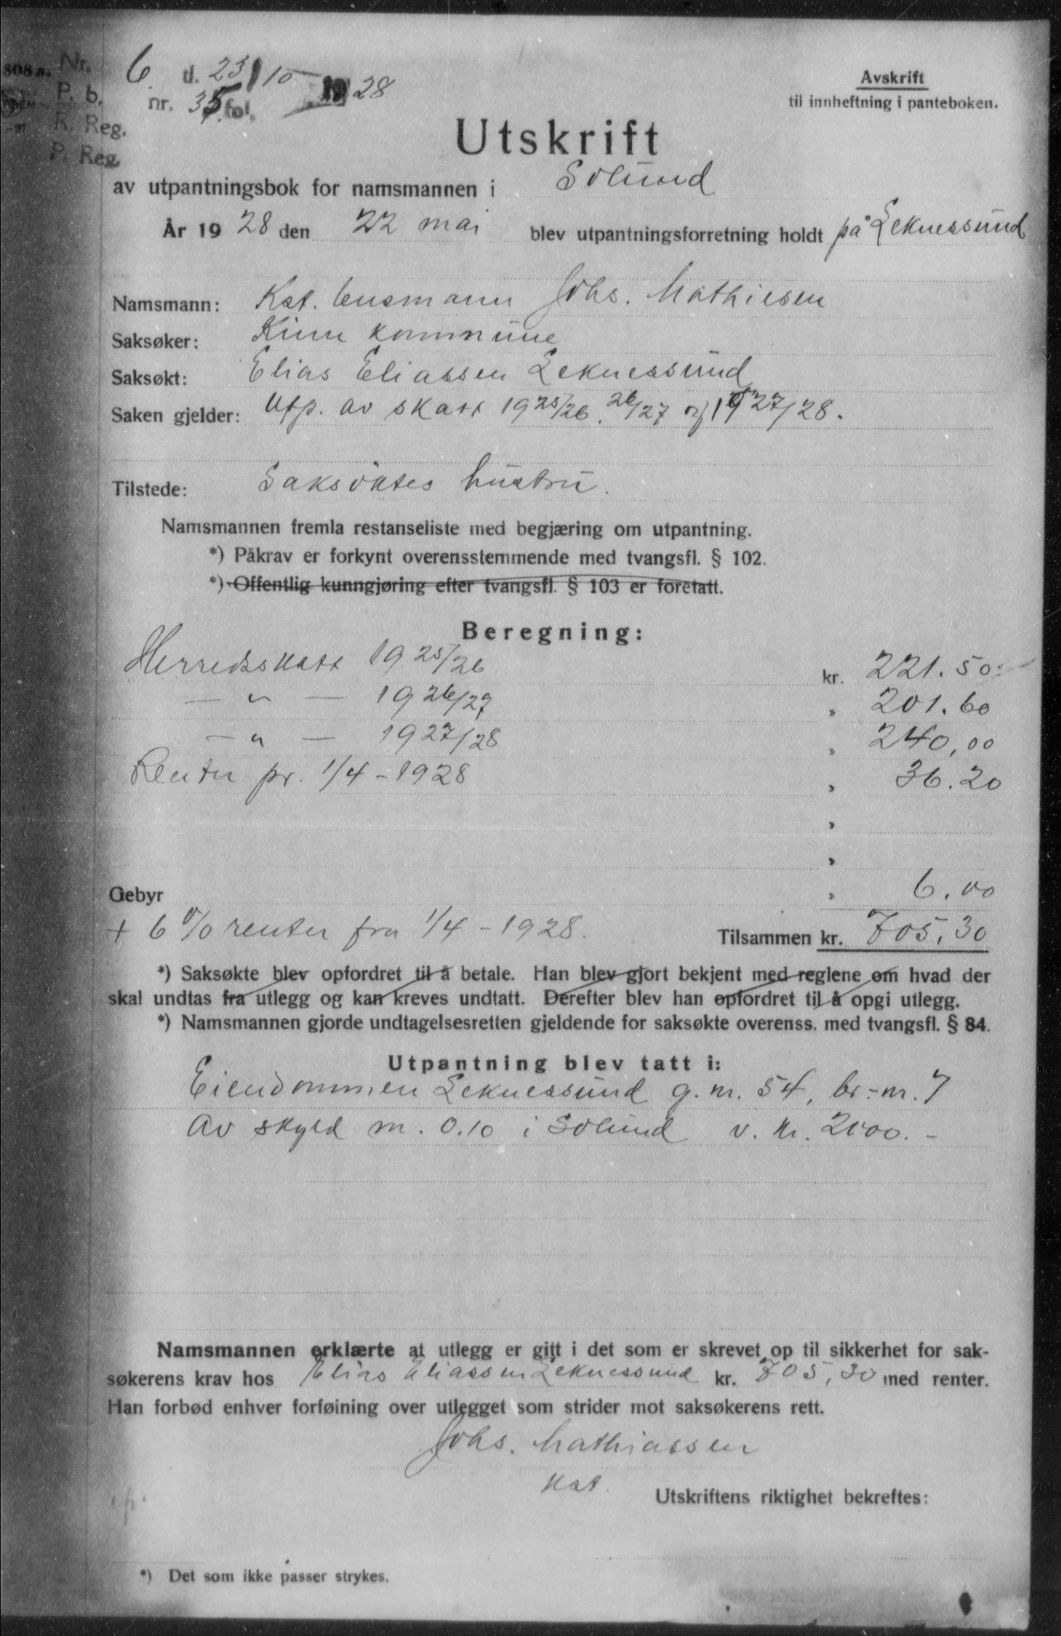 Nr. 6 d. 23/10 1928
P. b. nr. 35 fol.
R. Reg.
P. Reg.
Avskrift
til innheftning i panteboken.
Utskrift
av utpantningsbok for namsmannen i Solund
År 1928 den 22 mai blev utpantningsforretning holdt på Leknessund
Namsmann: Kst. lensmann Johs. Mathiesen
Saksøker: Kinn kommune
Saksøkt: Elias Eliassen Leknessund
Saken gjelder: Utp. av skatt 1925/26. 26/27 og 1927/28.
Tilstede: Saksøktes hustru.
Namsmannen fremla restanseliste med begjæring om utpantning.
*) Påkrav er forkynt overensstemmende med tvangsfl. § 102.
*) Offentlig kunngjøring efter tvangsfl. § 103 er foretatt.
Beregning:
Herredsskatt 1925/26 kr. 221.50
— " — 1926/27 " 201.60
— " — 1927/28 " 240,00
Renter pr. 1/4 - 1928 " 36.20
"
"
Gebyr " 6.00
+ 6 % renter fra 1/4 - 1928. Tilsammen kr. 705,30
*) Saksøkte blev opfordret til å betale. Han blev gjort bekjent med reglene om hvad der
skal undtas fra utlegg og kan kreves undtatt. Derefter blev han opfordret til å opgi utlegg.
*) Namsmannen gjorde undtagelsesretten gjeldende for saksøkte overenss. med tvangsfl. § 84.
Utpantning blev tatt i:
Eiendommen Leknessund g. nr. 54, br.-nr. 7
Av skyld m. 0.10 i Solund v. kr. 2000.-
Namsmannen erklærte at utlegg er gitt i det som er skrevet op til sikkerhet for sak-
søkerens krav hos Elias Eliassen Leknessund kr. 705,30 med renter.
Han forbød enhver forføining over utlegget som strider mot saksøkerens rett.
Johs. Mathiassen
kst.
Utskriftens riktighet bekreftes:
*) Det som ikke passer strykes.